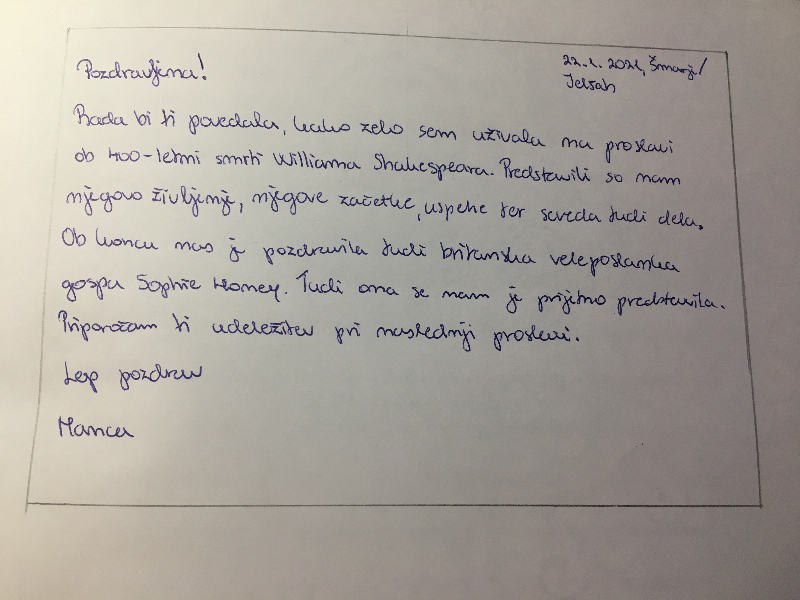 Pozdravljena!
22.1.2021, Šmarje/
Jelšah
Rada bi ti povedala, kako zelo sem uživala na proslavi
ob 400-letni smrti Williama Shakespeara. Predstavili so nam
njegovo življenje, njegove začetke, uspehe ter seveda tudi dela.
Ob koncu nas je pozdravila tudi britanska veleposlanka
gospa Sophie Honey. Tudi ona se nam je prijetno predstavila.
Priporočam ti udeležitev pri naslednji proslavi.
Lep pozdrav
Manca